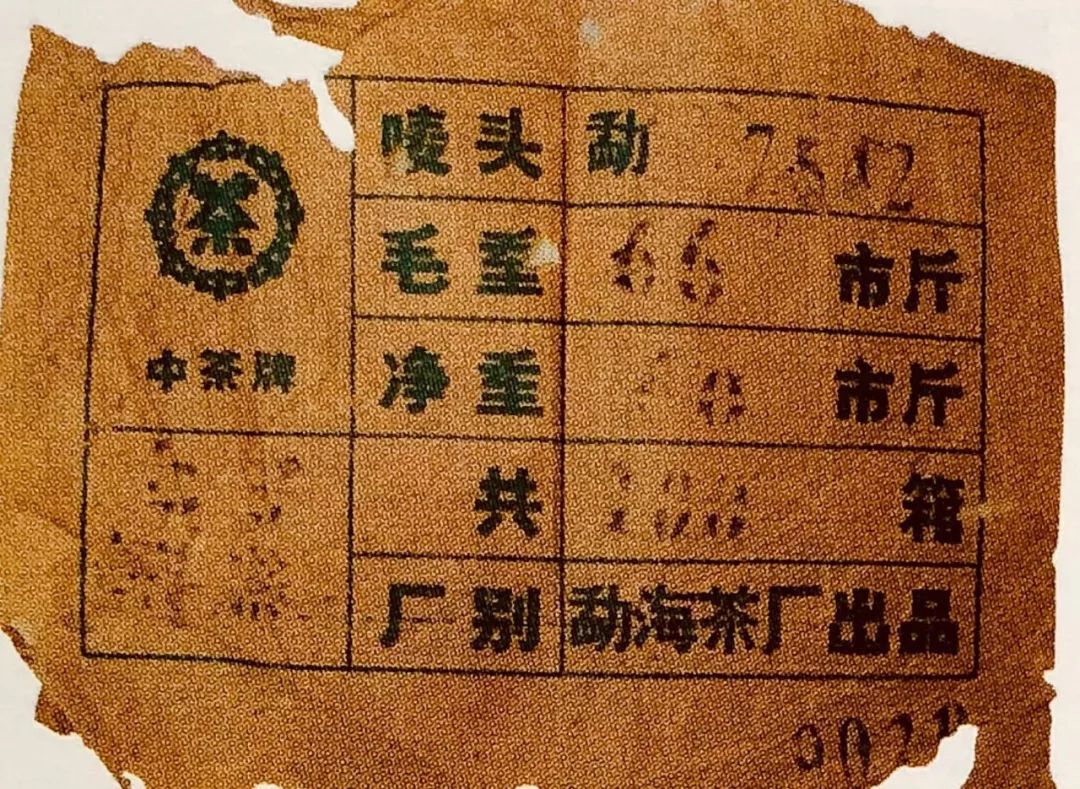 茶
中茶牌
唛头 勐
毛重 66 市斤
净重 市斤
共 100 箱
厂别 勐海茶厂出品